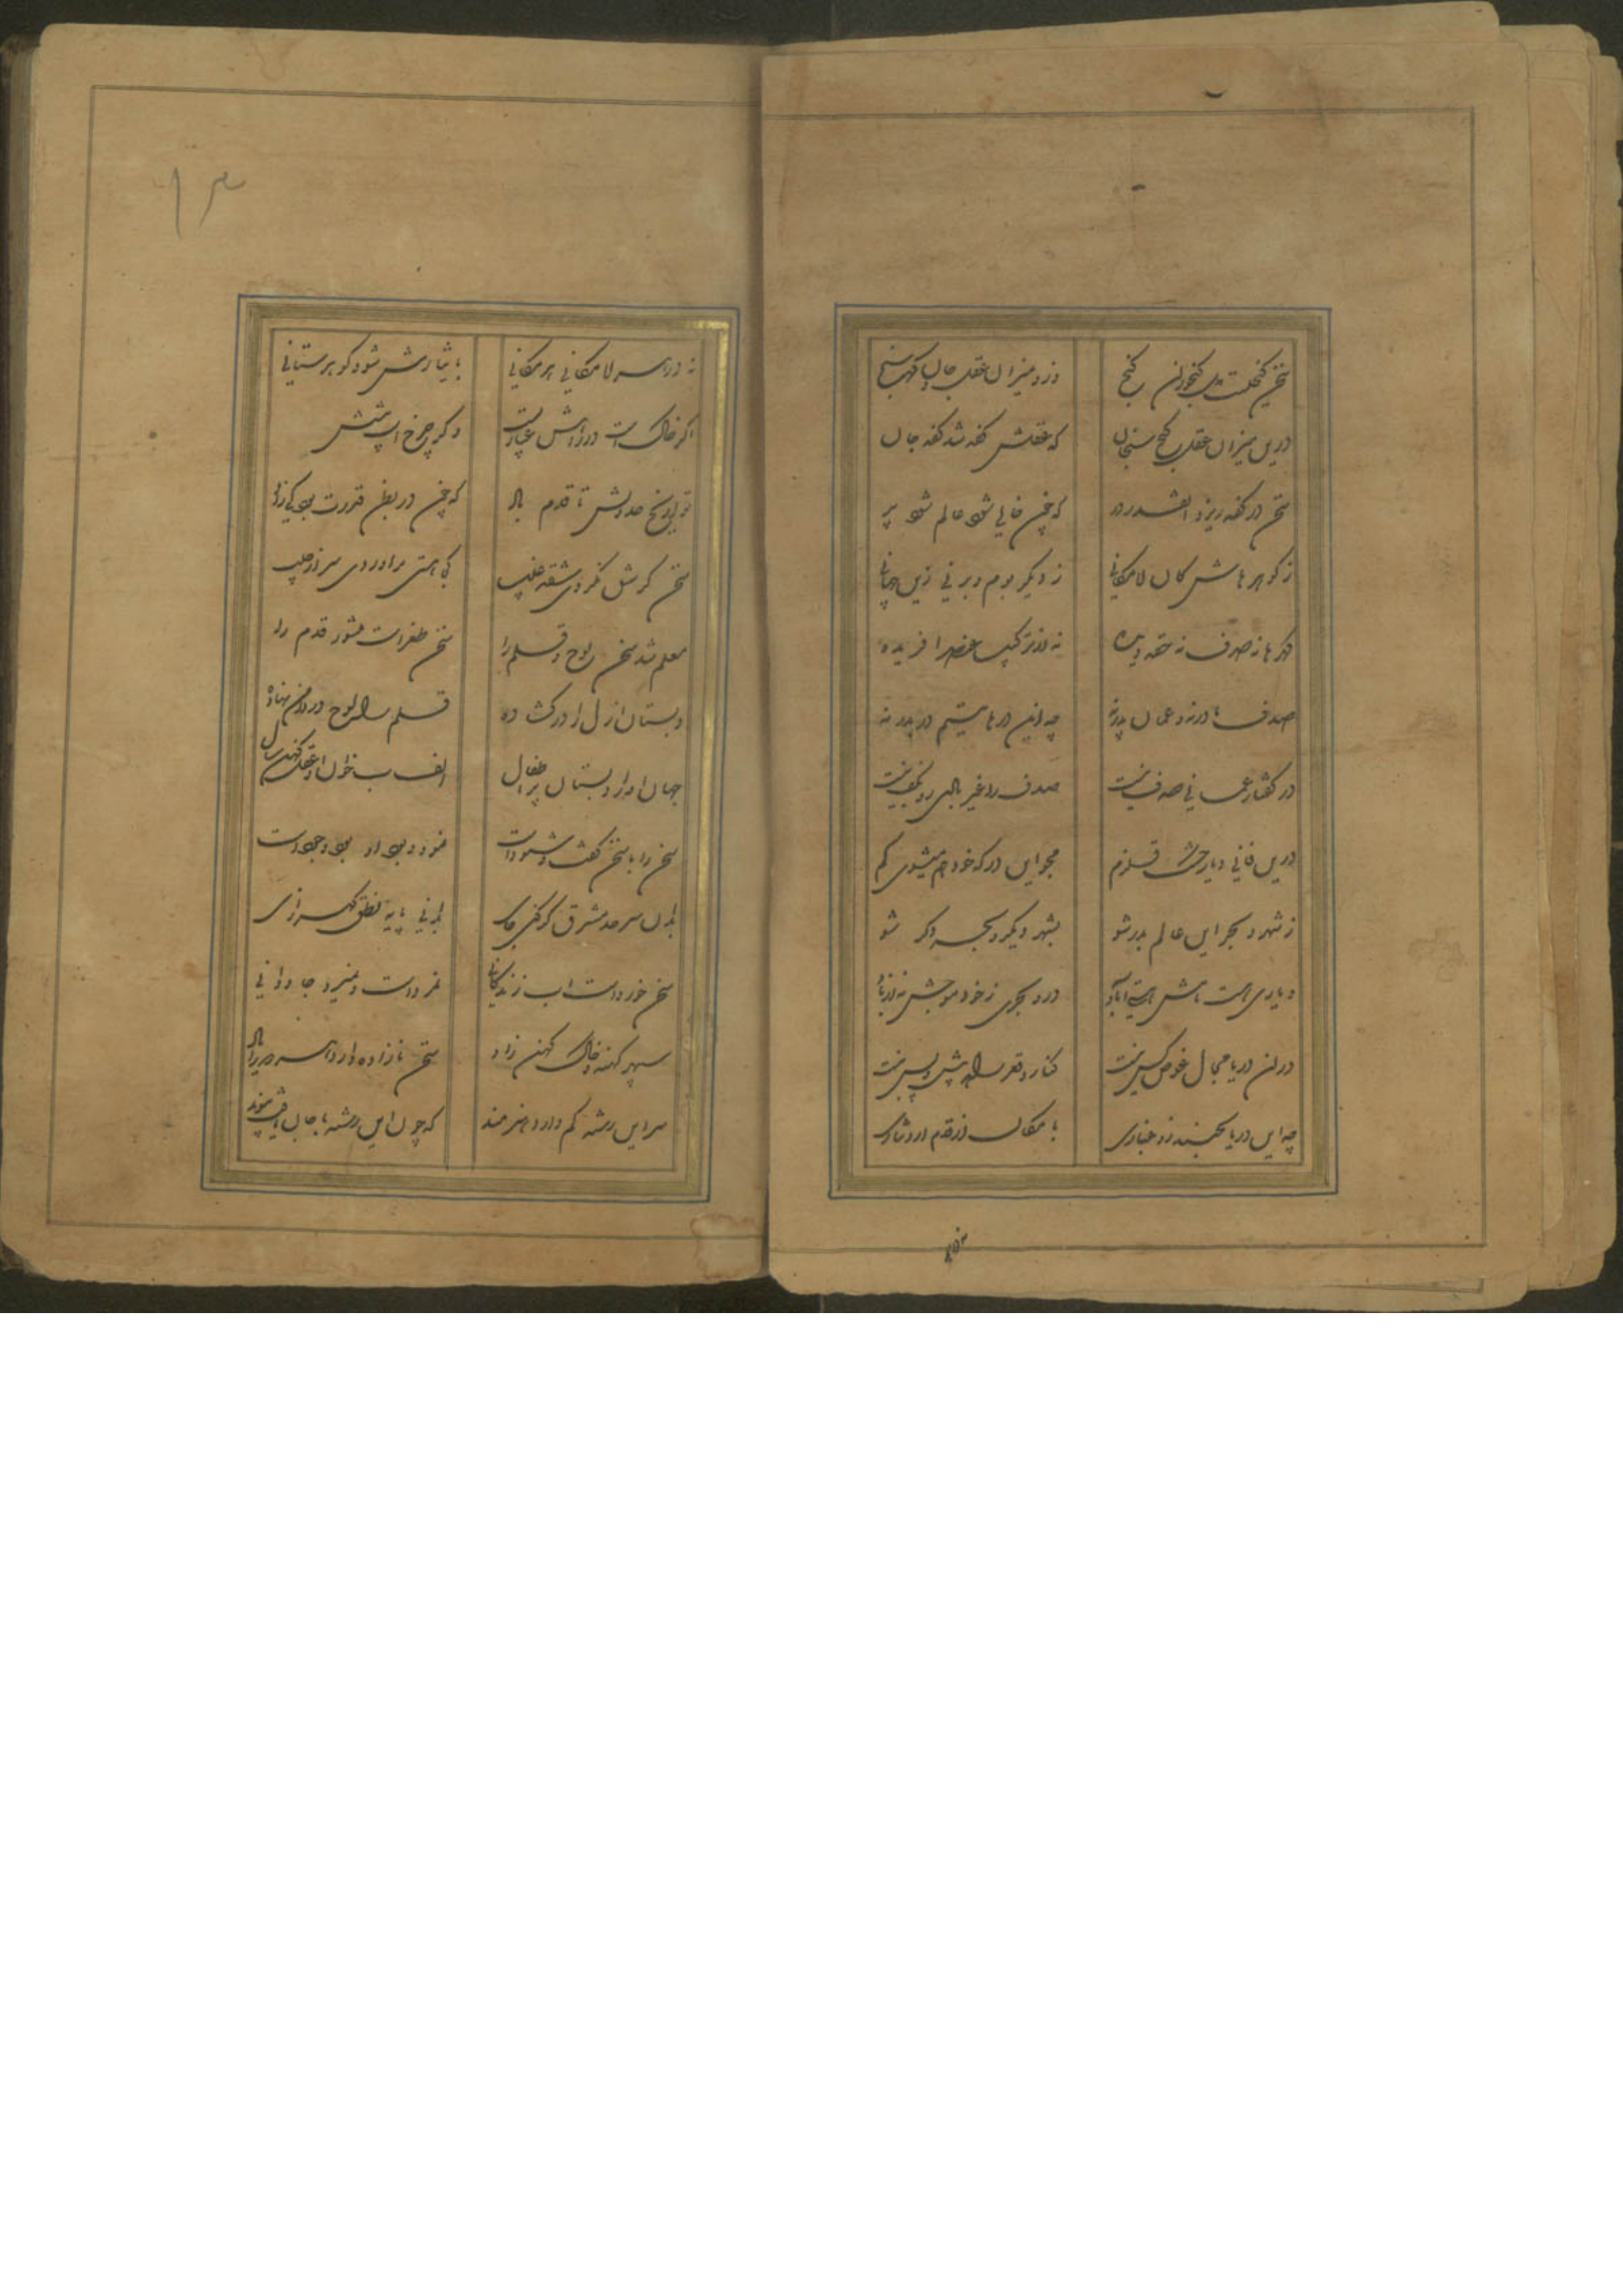 سخن گنجست و دل گنجور این گنج
وزو میزان عقل و جان گهرسنج
درین میزان عقل گنج سنجان
که عقلش کفه شد کفه جان
سخن در کفه ریزد آنقدر در
که چون خالی شود عالم شود پر
ز گوهرهاش کان لامکانی
ز دیگر بوم و بر نی زین جهانی
گهرها نه صدف نه حقه دیده
نه از ترکیب عنصر آفریده
صدف مادر نه و عمان پدر نه
چو این درها یتیم در بدر نه
در گفتار عمانی صدف نیست
صدف را غیر بادی در کف نیست
درین فانی دیار خشک قلزم
مجو این در که خود هم میشوی گم
ز شهر و بحر این عالم بدر شو
بشهر دیگر و بحر دگر شو
دیاری هست نامش هستی آباد
درو بحری ز خود موجش نه از باد
در آن دریا مجال غوص کس نیست
کنار و قعر راه پیش و پس نیست
چو این دریا بجنبد زو بخاری
بامکان از قدم آرد نثاری
۱۳
نه درهای لامکانی هر مکانی
با یثارش شود گوهر ستانی
اگر خاکست در راهش غباریست
وگر چرخ آب پشتش
تواریخ حدوثش تا قدم یاد
که چون در بطن قدرت بود کی زاد
سخن گر شق نکردی شقه غیب
کی هستی برآوردی سر از جیب
معلم شد سخن لوح و قلم را
سخن طغراست منشور قدم را
دبستان ازل را در گشاده
قلم را لوح در دامن نهاده
جهان او را دبستان پر اطفال
الف بی خوان او عقل کهن سال
سخن را با سخن گفت و شنودست
نمود و بود او بود وجودست
بدان سرحد مشرق گر کنی جای
بدانی پایه نطق گهرزای
سخن خوردست آب زندگانی
نمردست و نمیرد جاودانی
سپهر کهنه و خاک کهن زاد
سخن نازاده دارد هر دو را یاد
سر این رشته گم دارد خردمند
که چون این رشته با جان یافت پیوند